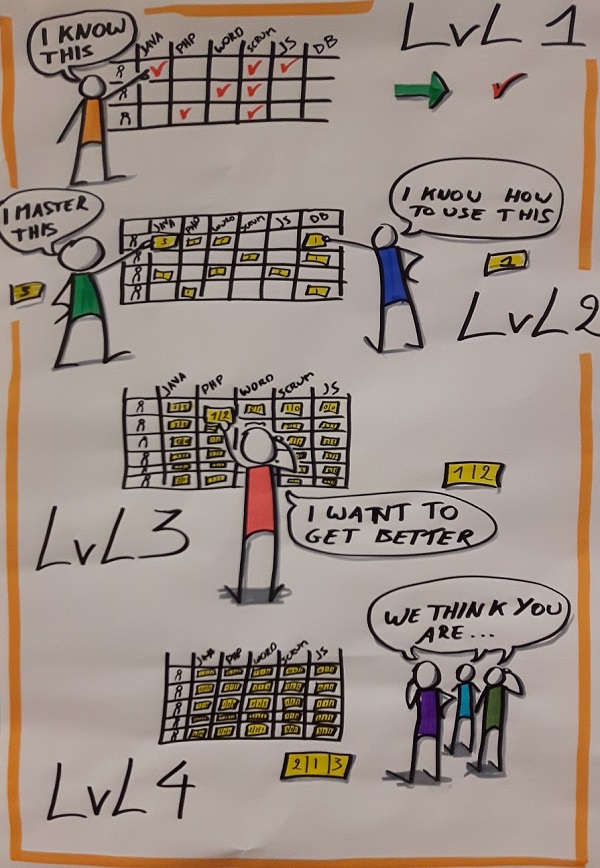 I KNOW
THIS
JAVA PHP WORD SCRUM JS DB
LvL 1
I MASTER
THIS
JAVA PHP WORD SCRUM JS DB
3
1
I KNOW HOW
TO USE THIS
3
1
LvL2
JAVA PHP WORD SCRUM JS
1|2
1|2
I WANT TO
GET BETTER
LvL3
WE THINK YOU
ARE...
JAVA PHP WORD SCRUM JS
2|1|3
LvL4